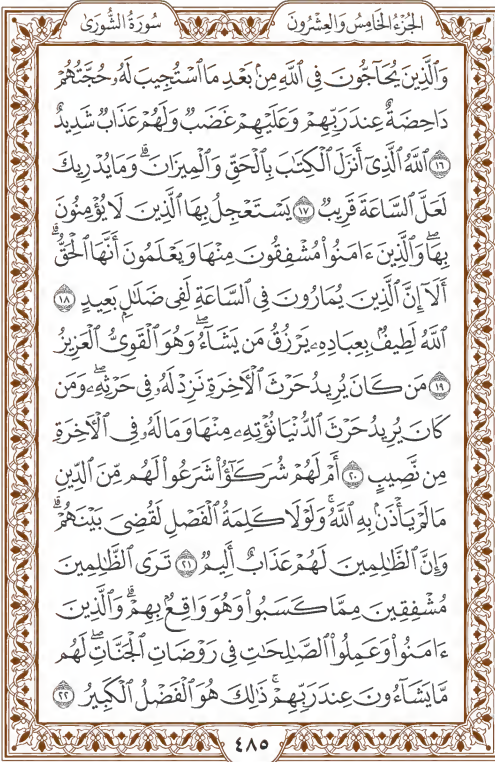 سُورَةُ الشُّورَىٰ الجُزْءُ الخَامِسُ وَالعِشْرُونَ
وَٱلَّذِينَ يُحَآجُّونَ فِى ٱللَّهِ مِنۢ بَعْدِ مَا ٱسْتُجِيبَ لَهُۥ حُجَّتُهُمْ
دَاحِضَةٌ عِندَ رَبِّهِمْ وَعَلَيْهِمْ غَضَبٌ وَلَهُمْ عَذَابٌ شَدِيدٌ
١٦ ٱللَّهُ ٱلَّذِىٓ أَنزَلَ ٱلْكِتَٰبَ بِٱلْحَقِّ وَٱلْمِيزَانَ ۗ وَمَا يُدْرِيكَ
لَعَلَّ ٱلسَّاعَةَ قَرِيبٌ ١٧ يَسْتَعْجِلُ بِهَا ٱلَّذِينَ لَا يُؤْمِنُونَ
بِهَا ۖ وَٱلَّذِينَ ءَامَنُوا۟ مُشْفِقُونَ مِنْهَا وَيَعْلَمُونَ أَنَّهَا ٱلْحَقُّ ۗ
أَلَآ إِنَّ ٱلَّذِينَ يُمَارُونَ فِى ٱلسَّاعَةِ لَفِى ضَلَٰلٍۭ بَعِيدٍ ١٨
ٱللَّهُ لَطِيفٌۢ بِعِبَادِهِۦ يَرْزُقُ مَن يَشَآءُ ۖ وَهُوَ ٱلْقَوِىُّ ٱلْعَزِيزُ
١٩ مَن كَانَ يُرِيدُ حَرْثَ ٱلْءَاخِرَةِ نَزِدْ لَهُۥ فِى حَرْثِهِۦ ۖ وَمَن
كَانَ يُرِيدُ حَرْثَ ٱلدُّنْيَا نُؤْتِهِۦ مِنْهَا وَمَا لَهُۥ فِى ٱلْءَاخِرَةِ
مِن نَّصِيبٍ ٢٠ أَمْ لَهُمْ شُرَكَٰٓؤُا۟ شَرَعُوا۟ لَهُم مِّنَ ٱلدِّينِ
مَا لَمْ يَأْذَنۢ بِهِ ٱللَّهُ ۚ وَلَوْلَا كَلِمَةُ ٱلْفَصْلِ لَقُضِىَ بَيْنَهُمْ ۗ
وَإِنَّ ٱلظَّٰلِمِينَ لَهُمْ عَذَابٌ أَلِيمٌ ٢١ تَرَى ٱلظَّٰلِمِينَ
مُشْفِقِينَ مِمَّا كَسَبُوا۟ وَهُوَ وَاقِعٌۢ بِهِمْ ۗ وَٱلَّذِينَ
ءَامَنُوا۟ وَعَمِلُوا۟ ٱلصَّٰلِحَٰتِ فِى رَوْضَاتِ ٱلْجَنَّاتِ ۖ لَهُم
مَّا يَشَآءُونَ عِندَ رَبِّهِمْ ۚ ذَٰلِكَ هُوَ ٱلْفَضْلُ ٱلْكَبِيرُ ٢٢
٤٨٥